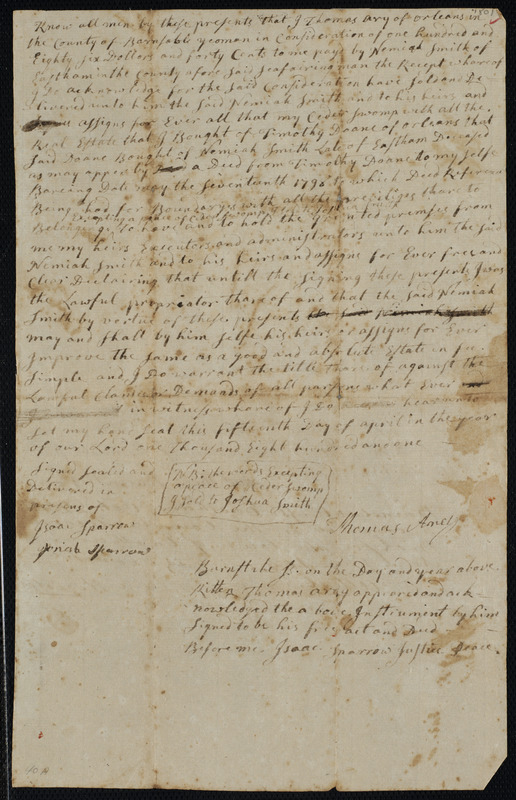 1801
Know all men by these presents that I Thomas Ary of orleans in
the County of Barnstable yeoman in Consideration of one hundred and
Eighty six Dollers and forty Cents to me paye by Nemiah Smith of
Eastham in the County afore Said Seafairing man the Recept whareof
I Do acknowledge for the Said Consideration have Sold and De
livered unto him the Said Nemiah Smith and to his heirs and
assigns for Ever all that my Ceder Swomp with all the
Real Estate that I Bought of Timothy Doane of orleans that
Said Doane Bought of Nemiah Smith Late of Eastham Deceased
as may apper by a Deed from Timothy Doane to my Selfe
Bareing Date may the Seventeenth 1798 to which Deed Referan
Being had for Boundarys with all the previliges thare to
Excepting a peace of Ceder Swomp
Belonging to have and to hold the granted premises from
me my heirs Executors and administrators unto him the Said
Nemiah Smith and to his heirs and assigns for Ever free and
Cleir Declairing that untill the Signing these presents I am
the Lawful propriator thare of and that the Said Nemiah
Smith by vertue of these presents
may and Shall by him Selfe his heirs and assigns for Ever
Improve the Same as a good and absolute Estate in fee
Simple and I Do warrant the title thare of against the
Lawful Claims or Demands of all parsons what Ever
in witness whareof I Do hearunto
Set my hand Seal this fifteenth Day of april in the year
of our Lord one thousand Eight hundred and one
Signed Sealed and
Delivered in
presens of
Isaac Sparrow
Josiah Sparrow
N B the words Excepting
a peace of Ceder Swomp
I Sold to Joshua Smith
Thomas Arey
Barnstable Ss. on the Day and year above
Ritten Thomas Arey appeared and ack
nowledged the a bove Instrument by him
Signed to be his free act and Deed
Before me Isaac Sparrow Justice Peace